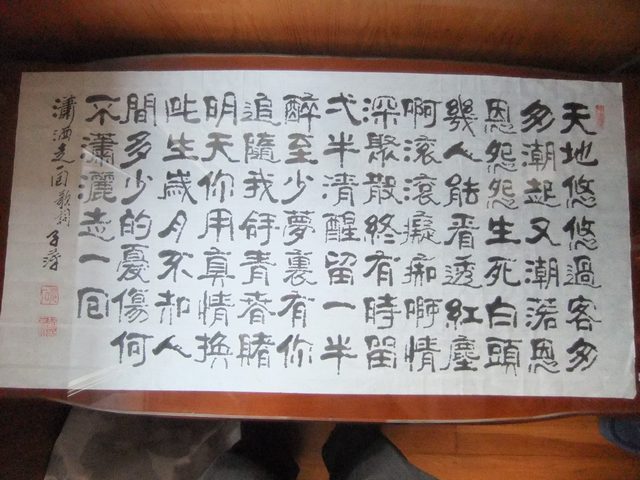 天地悠悠過客匆
匆潮起又潮落恩
恩怨怨生死白頭
幾人能看透紅塵
啊滾滾癡痴啊情
深聚散終有時留
弌半清醒留一半
醉至少夢裏有你
追隨我拿青春賭
明天你用真情換
此生歲月不知人
間多少的憂傷何
不瀟灑走一回
瀟洒走一回歌詞